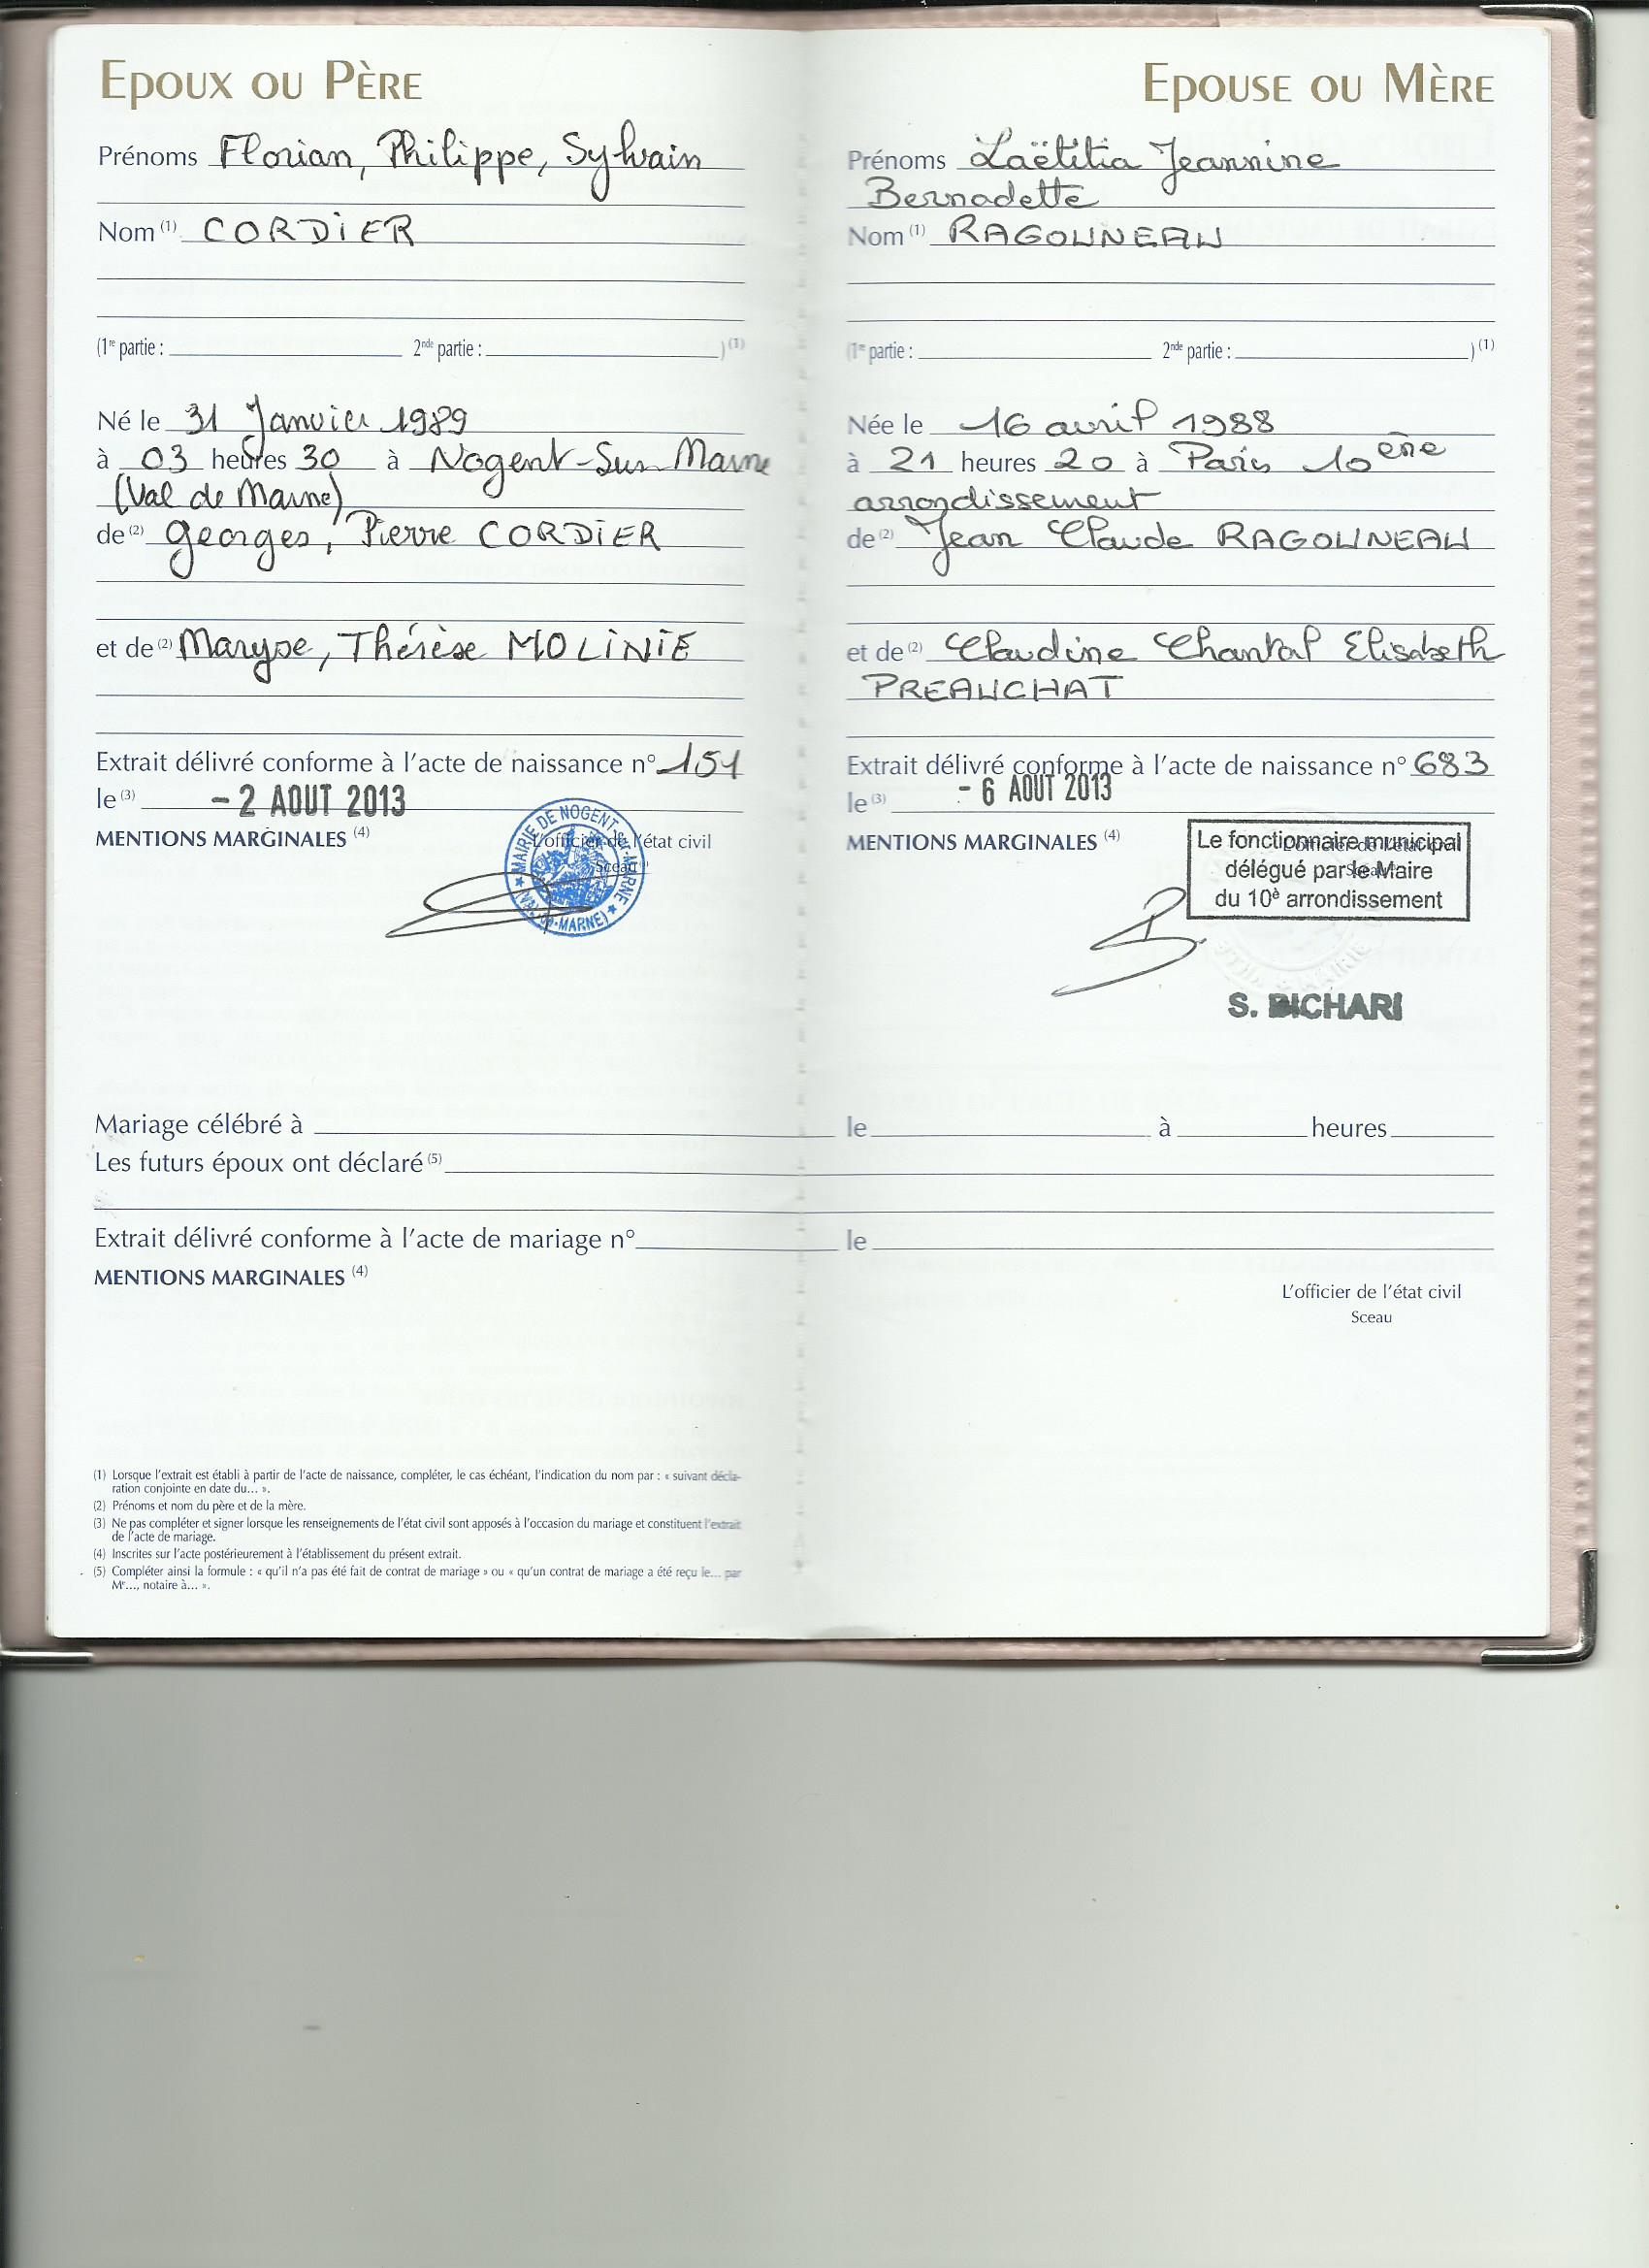 EPOUX OU PÈRE
Prénoms Florian, Philippe, Sylvain
Nom (1) CORDIER
(1re partie : 2nde partie : ) (1)
Né le 31 Janvier 1989
à 03 heures 30 à Nogent-Sur-Marne
(Val de Marne)
de (2) Georges, Pierre CORDIER
et de (2) Maryse, Thérèse MOLINIE
Extrait délivré conforme à l'acte de naissance n° 151
le (3) - 2 AOUT 2013
MENTIONS MARGINALES (4)
L'officier de l'état civil
Sceau
MAIRIE DE NOGENT-sur-MARNE
(VAL-de-MARNE)
EPOUSE OU MÈRE
Prénoms Laëtitia Jeannine
Bernadette
Nom (1) RAGOUNEAU
(1re partie : 2nde partie : ) (1)
Née le 16 avril 1988
à 21 heures 20 à Paris 10ème
arrondissement
de (2) Jean Claude RAGOUNEAU
et de (2) Claudine Chantal Elisabeth
PREAUCHAT
Extrait délivré conforme à l'acte de naissance n° 683
le (3) - 6 AOUT 2013
MENTIONS MARGINALES (4)
L'officier de l'état civil
Sceau
Le fonctionnaire municipal
délégué par le Maire
du 10è arrondissement
S. BICHARI
Mariage célébré à le à heures
Les futurs époux ont déclaré (5)
Extrait délivré conforme à l'acte de mariage n° le
MENTIONS MARGINALES (4)
L'officier de l'état civil
Sceau
(1) Lorsque l'extrait est établi à partir de l'acte de naissance, compléter, le cas échéant, l'indication du nom par : « suivant décla-
ration conjointe en date du... ».
(2) Prénoms et nom du père et de la mère.
(3) Ne pas compléter et signer lorsque les renseignements de l'état civil sont apposés à l'occasion du mariage et constituent l'extrait
de l'acte de mariage.
(4) Inscrites sur l'acte postérieurement à l'établissement du présent extrait.
(5) Compléter ainsi la formule : « qu'il n'a pas été fait de contrat de mariage » ou « qu'un contrat de mariage a été reçu le... par
Me..., notaire à... ».